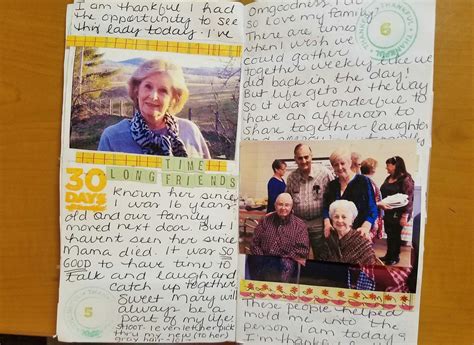 I am thankful I had
the opportunity to see
this lady today. I've
TIME
LONG FRIENDS
30
DAYS
known her since
I was 16 years
old and our family
moved next door. But I
haven't seen her since
Mama died. It was SO
GOOD to have time to
talk and laugh and
catch up together.
Sweet Mary will
always be a
part of my life.
SHOOT- I even let her pick
thru my new (to her)
gray hair -lol-
5
Omgoodness!
so love my family.
There are times
when I wish we
could gather
together weekly like we
did back in the day!
But life gets in the way
so it was wonderful to
have an afternoon to
share together laughter
and
THANKFUL
6
These people helped
mold me into the
person I am today.
I'm thankful